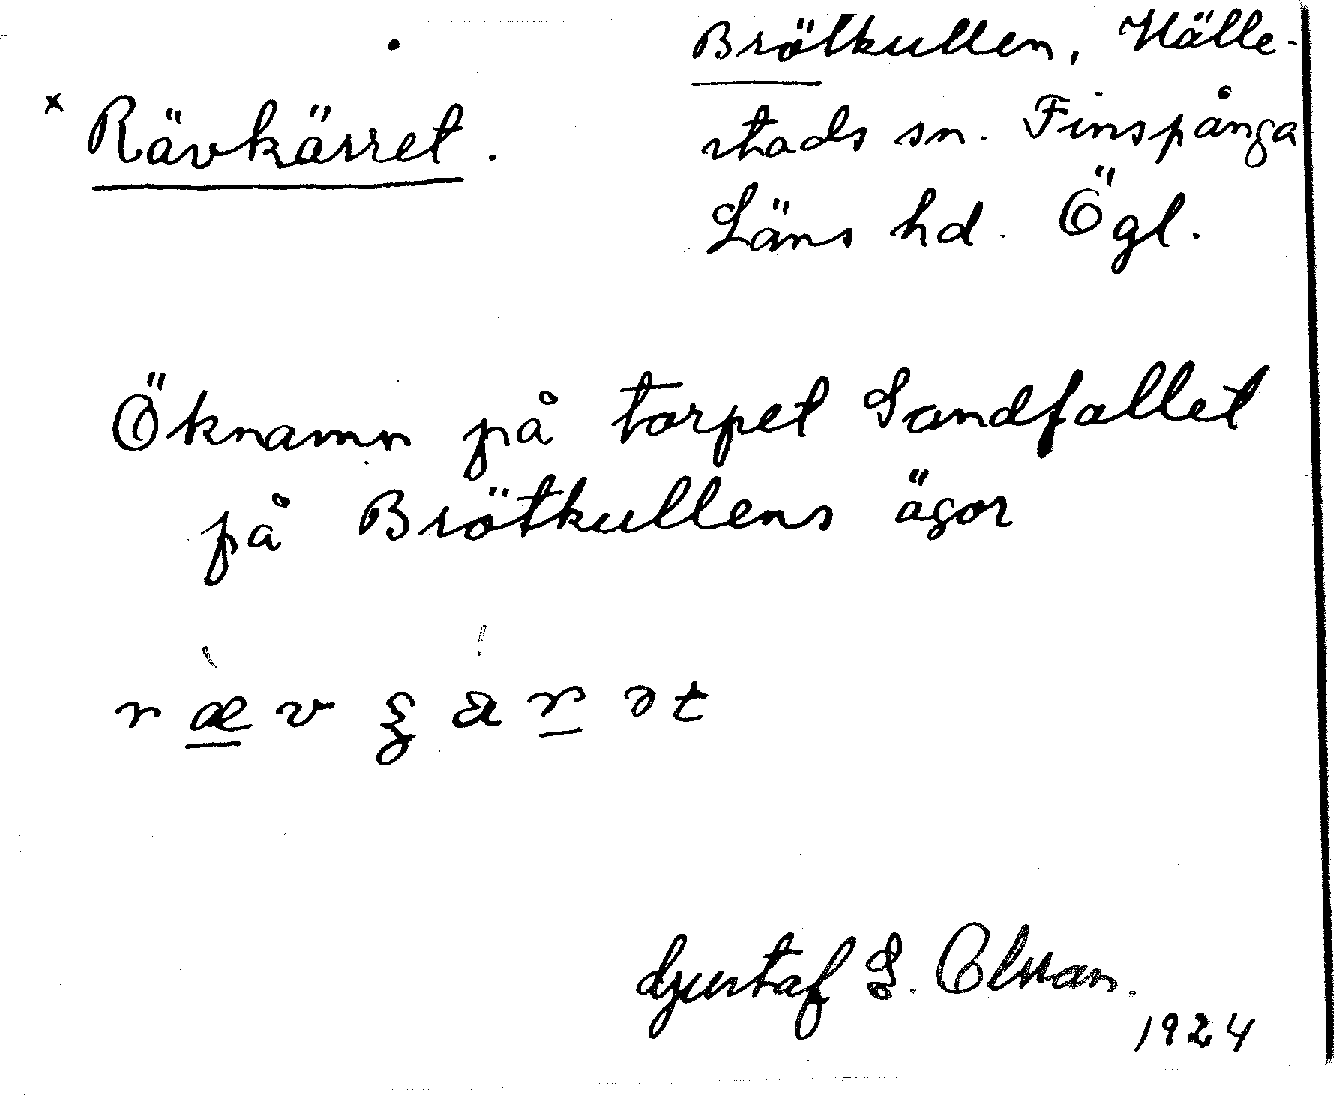 × Rävkärret.
Brötkullen, Hälle-
stads sn. Finspånga
Läns hd. Ögl.
Öknamn på torpet Sandfallet
på Brötkullens ägor
Gustaf S. Olvan.
1924